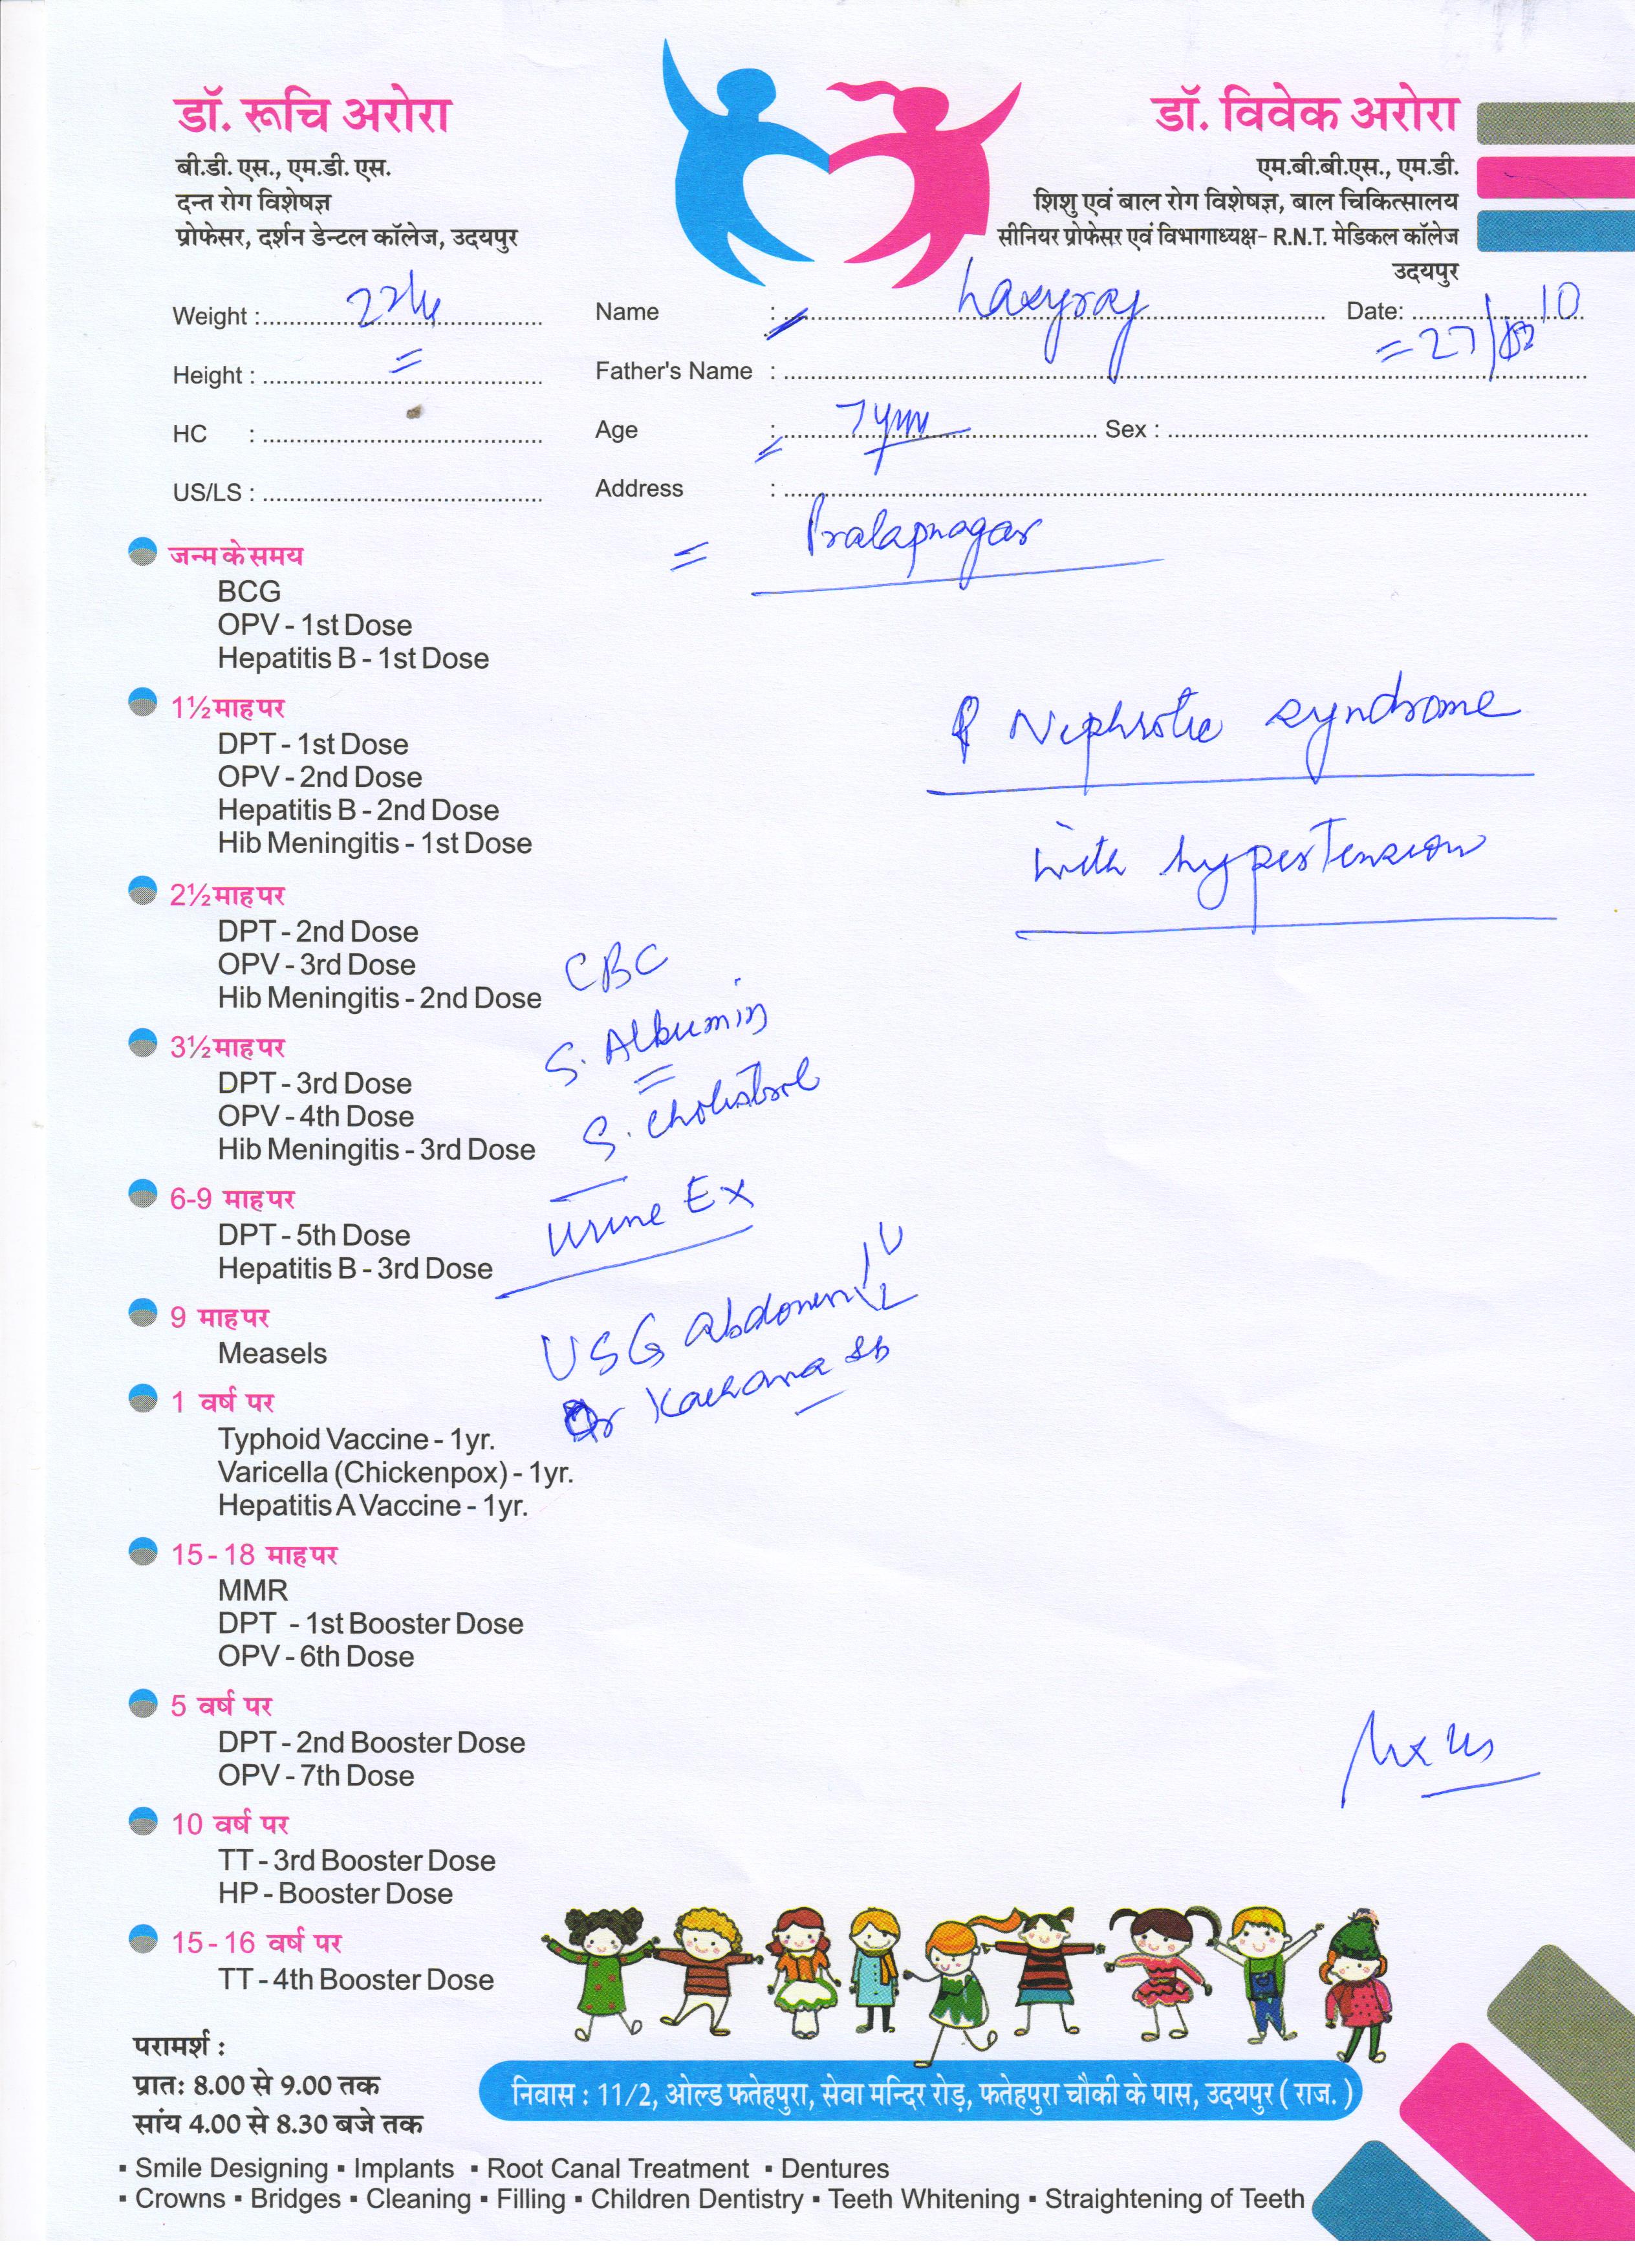 डॉ. रूचि अरोरा
बी.डी. एस., एम.डी. एस.
दन्त रोग विशेषज्ञ
प्रोफेसर, दर्शन डेन्टल कॉलेज, उदयपुर
डॉ. विवेक अरोरा
एम.बी.बी.एस., एम.डी.
शिशु एवं बाल रोग विशेषज्ञ, बाल चिकित्सालय
सीनियर प्रोफेसर एवं विभागाध्यक्ष- R.N.T. मेडिकल कॉलेज
उदयपुर
Weight : Name : Date: 27/ 10
Height : Father's Name :
HC : Age : 7 Sex :
US/LS : Address :
Pratapnagar
जन्म के समय
BCG
OPV - 1st Dose
Hepatitis B - 1st Dose
1½ माह पर
DPT - 1st Dose
OPV - 2nd Dose
Hepatitis B - 2nd Dose
Hib Meningitis - 1st Dose
2½ माह पर
DPT - 2nd Dose
OPV - 3rd Dose
Hib Meningitis - 2nd Dose
3½ माह पर
DPT - 3rd Dose
OPV - 4th Dose
Hib Meningitis - 3rd Dose
6-9 माह पर
DPT - 5th Dose
Hepatitis B - 3rd Dose
9 माह पर
Measels
1 वर्ष पर
Typhoid Vaccine - 1yr.
Varicella (Chickenpox) - 1yr.
Hepatitis A Vaccine - 1yr.
15-18 माह पर
MMR
DPT - 1st Booster Dose
OPV - 6th Dose
5 वर्ष पर
DPT - 2nd Booster Dose
OPV - 7th Dose
10 वर्ष पर
TT - 3rd Booster Dose
HP - Booster Dose
15-16 वर्ष पर
TT - 4th Booster Dose
Nephrotic syndrome
with hypertension
CBC
S. Albumin
S. Cholistrol
Urine Ex
USG abdomen
Dr
परामर्श :
प्रातः 8.00 से 9.00 तक
सांय 4.00 से 8.30 बजे तक
निवास : 11/2, ओल्ड फतेहपुरा, सेवा मन्दिर रोड़, फतेहपुरा चौकी के पास, उदयपुर ( राज. )
▪ Smile Designing ▪ Implants ▪ Root Canal Treatment ▪ Dentures
▪ Crowns ▪ Bridges ▪ Cleaning ▪ Filling ▪ Children Dentistry ▪ Teeth Whitening ▪ Straightening of Teeth